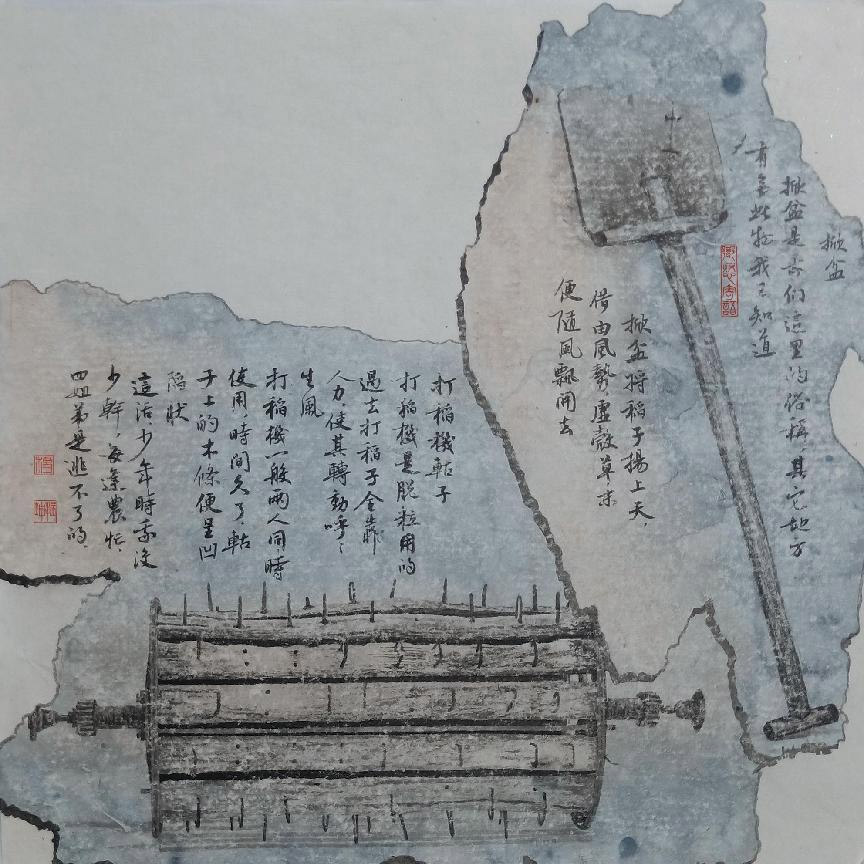 掀盆
掀盆是古们這里的俗稱,其它地方
有無此物我不知道
掀盆将稻子揚上天,
借由風勢,虛殼草末
便隨風飄開去
打稲機軲子
打稲機是脱粒用的
過去打稲子全靠
人力使其轉動呼〻
生風
打稲機一般兩人同時
使用,時間久了,軲
子上的木條便呈凹
陷狀
這活,少年時我没
少幹,每逢農忙,
四姐弟是逃不了的,